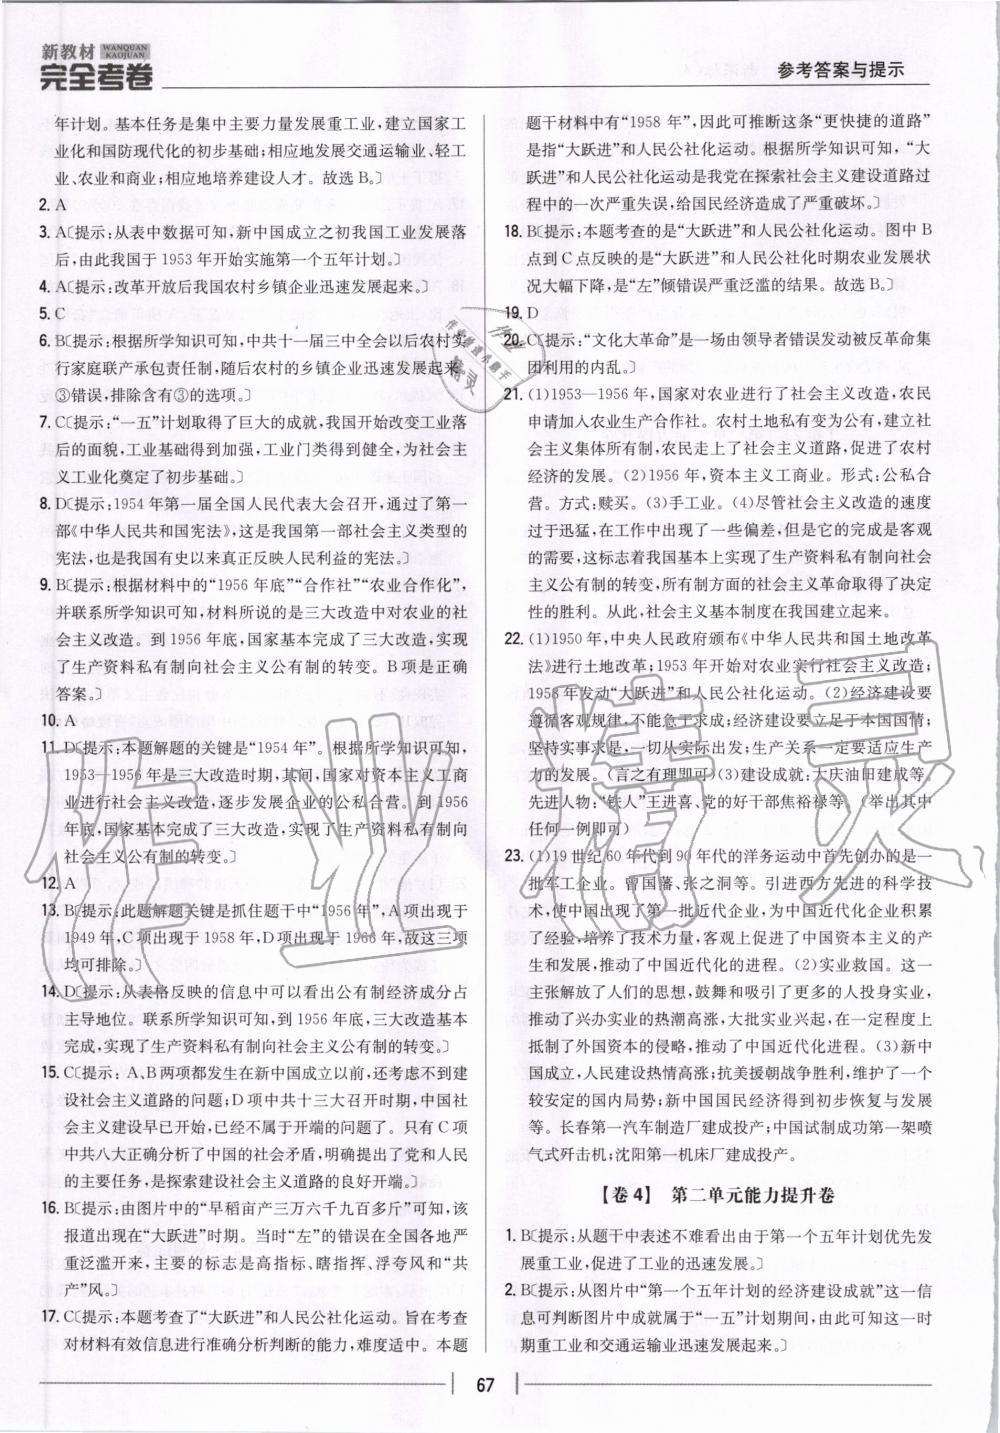 新教材 WANQUAN KAOJUAN
完全考卷
参考答案与提示
年计划。基本任务是集中主要力量发展重工业,建立国家工
业化和国防现代化的初步基础;相应地发展交通运输业、轻工
业、农业和商业;相应地培养建设人才。故选B。〕
2. A
3. A〔提示:从表中数据可知,新中国成立之初我国工业发展落
后,由此我国于1953年开始实施第一个五年计划。〕
4. A〔提示:改革开放后我国农村乡镇企业迅速发展起来。〕
5. C
6. B〔提示:根据所学知识可知,中共十一届三中全会以后农村实
行家庭联产承包责任制,随后农村的乡镇企业迅速发展起来,
③错误,排除含有③的选项。〕
7. C〔提示:“一五”计划取得了巨大的成就,我国开始改变工业落
后的面貌,工业基础得到加强,工业门类得到健全,为社会主
义工业化奠定了初步基础。〕
8. D〔提示:1954年第一届全国人民代表大会召开,通过了第一
部《中华人民共和国宪法》,这是我国第一部社会主义类型的
宪法,也是我国有史以来真正反映人民利益的宪法。〕
9. B〔提示:根据材料中的“1956年底”“合作社”“农业合作化”,
并联系所学知识可知,材料所说的是三大改造中对农业的社
会主义改造。到1956年底,国家基本完成了三大改造,实现
了生产资料私有制向社会主义公有制的转变。B项是正确
答案。〕
10. A
11. D〔提示:本题解题的关键是“1954年”。根据所学知识可知,
1953—1956年是三大改造时期,其间,国家对资本主义工商
业进行社会主义改造,逐步发展企业的公私合营。到1956
年底,国家基本完成了三大改造,实现了生产资料私有制向
社会主义公有制的转变。〕
12. A
13. B〔提示:此题解题关键是抓住题干中“1956年”,A项出现于
1949年,C项出现于1958年,D项出现于1966年,故这三项
均可排除。〕
14. D〔提示:从表格反映的信息中可以看出公有制经济成分占
主导地位。联系所学知识可知,到1956年底,三大改造基本
完成,实现了生产资料私有制向社会主义公有制的转变。〕
15. C〔提示:A、B两项都发生在新中国成立以前,还考虑不到建
设社会主义道路的问题;D项中共十三大召开时期,中国社会
主义建设早已开始,已经不属于开端的问题了。只有C项
中共八大正确分析了中国的社会矛盾,明确提出了党和人民
的主要任务,是探索建设社会主义道路的良好开端。〕
16. B〔提示:由图片中的“早稻亩产三万六千九百多斤”可知,该
报道出现在“大跃进”时期。当时“左”的错误在全国各地严
重泛滥开来,主要的标志是高指标、瞎指挥、浮夸风和“共
产”风。〕
17. C〔提示:本题考查了“大跃进”和人民公社化运动。旨在考查
对材料有效信息进行准确分析判断的能力,难度适中。本题
题干材料中有“1958年”,因此可推断这条“更快捷的道路”
是指“大跃进”和人民公社化运动。根据所学知识可知,“大
跃进”和人民公社化运动是我党在探索社会主义建设道路过
程中的一次严重失误,给国民经济造成了严重破坏。〕
18. B〔提示:本题考查的是“大跃进”和人民公社化运动。图中B
点到C点反映的是“大跃进”和人民公社化时期农业发展状
况大幅下降,是“左”倾错误严重泛滥的结果。故选B。〕
19. D
20. C〔提示:“文化大革命”是一场由领导者错误发动被反革命集
团利用的内乱。〕
21. (1)1953—1956年,国家对农业进行了社会主义改造,农民
申请加入农业生产合作社。农村土地私有变为公有,建立社
会主义集体所有制,农民走上了社会主义道路,促进了农村
经济的发展。(2)1956年,资本主义工商业。形式:公私合
营。方式:赎买。(3)手工业。(4)尽管社会主义改造的速度
过于迅猛,在工作中出现了一些偏差,但是它的完成是客观
的需要,这标志着我国基本上实现了生产资料私有制向社会
主义公有制的转变,所有制方面的社会主义革命取得了决定
性的胜利。从此,社会主义基本制度在我国建立起来。
22. (1)1950年,中央人民政府颁布《中华人民共和国土地改革
法》进行土地改革;1953年开始对农业实行社会主义改造;
1958年发动“大跃进”和人民公社化运动。(2)经济建设要
遵循客观规律,不能急于求成;经济建设要立足于本国国情;
坚持实事求是,一切从实际出发;生产关系一定要适应生产
力的发展。(言之有理即可)(3)建设成就:大庆油田建成等。
先进人物:“铁人”王进喜、党的好干部焦裕禄等。(举出其中
任何一例即可)
23. (1)19世纪60年代到90年代的洋务运动中首先创办的是一
批军工企业。曾国藩、张之洞等。引进西方先进的科学技
术,使中国出现了第一批近代企业,为中国近代化企业积累
了经验,培养了技术力量,客观上促进了中国资本主义的产
生和发展,推动了中国近代化的进程。(2)实业救国。这一
主张解放了人们的思想,鼓舞和吸引了更多的人投身实业,
推动了兴办实业的热潮高涨,大批实业兴起,在一定程度上
抵制了外国资本的侵略,推动了中国近代化进程。(3)新中
国成立,人民建设热情高涨;抗美援朝战争胜利,维护了一个
较安定的国内局势;新中国国民经济得到初步恢复与发展
等。长春第一汽车制造厂建成投产;中国试制成功第一架喷
气式歼击机;沈阳第一机床厂建成投产。
【卷4】 第二单元能力提升卷
1. B〔提示:从题干中表述不难看出由于第一个五年计划优先发
展重工业,促进了工业的迅速发展。〕
2. B〔提示:从图片中“第一个五年计划的经济建设成就”这一信
息可判断图片中成就属于“一五”计划期间,由此可知这一时
期重工业和交通运输业迅速发展起来。〕
67
作业精灵